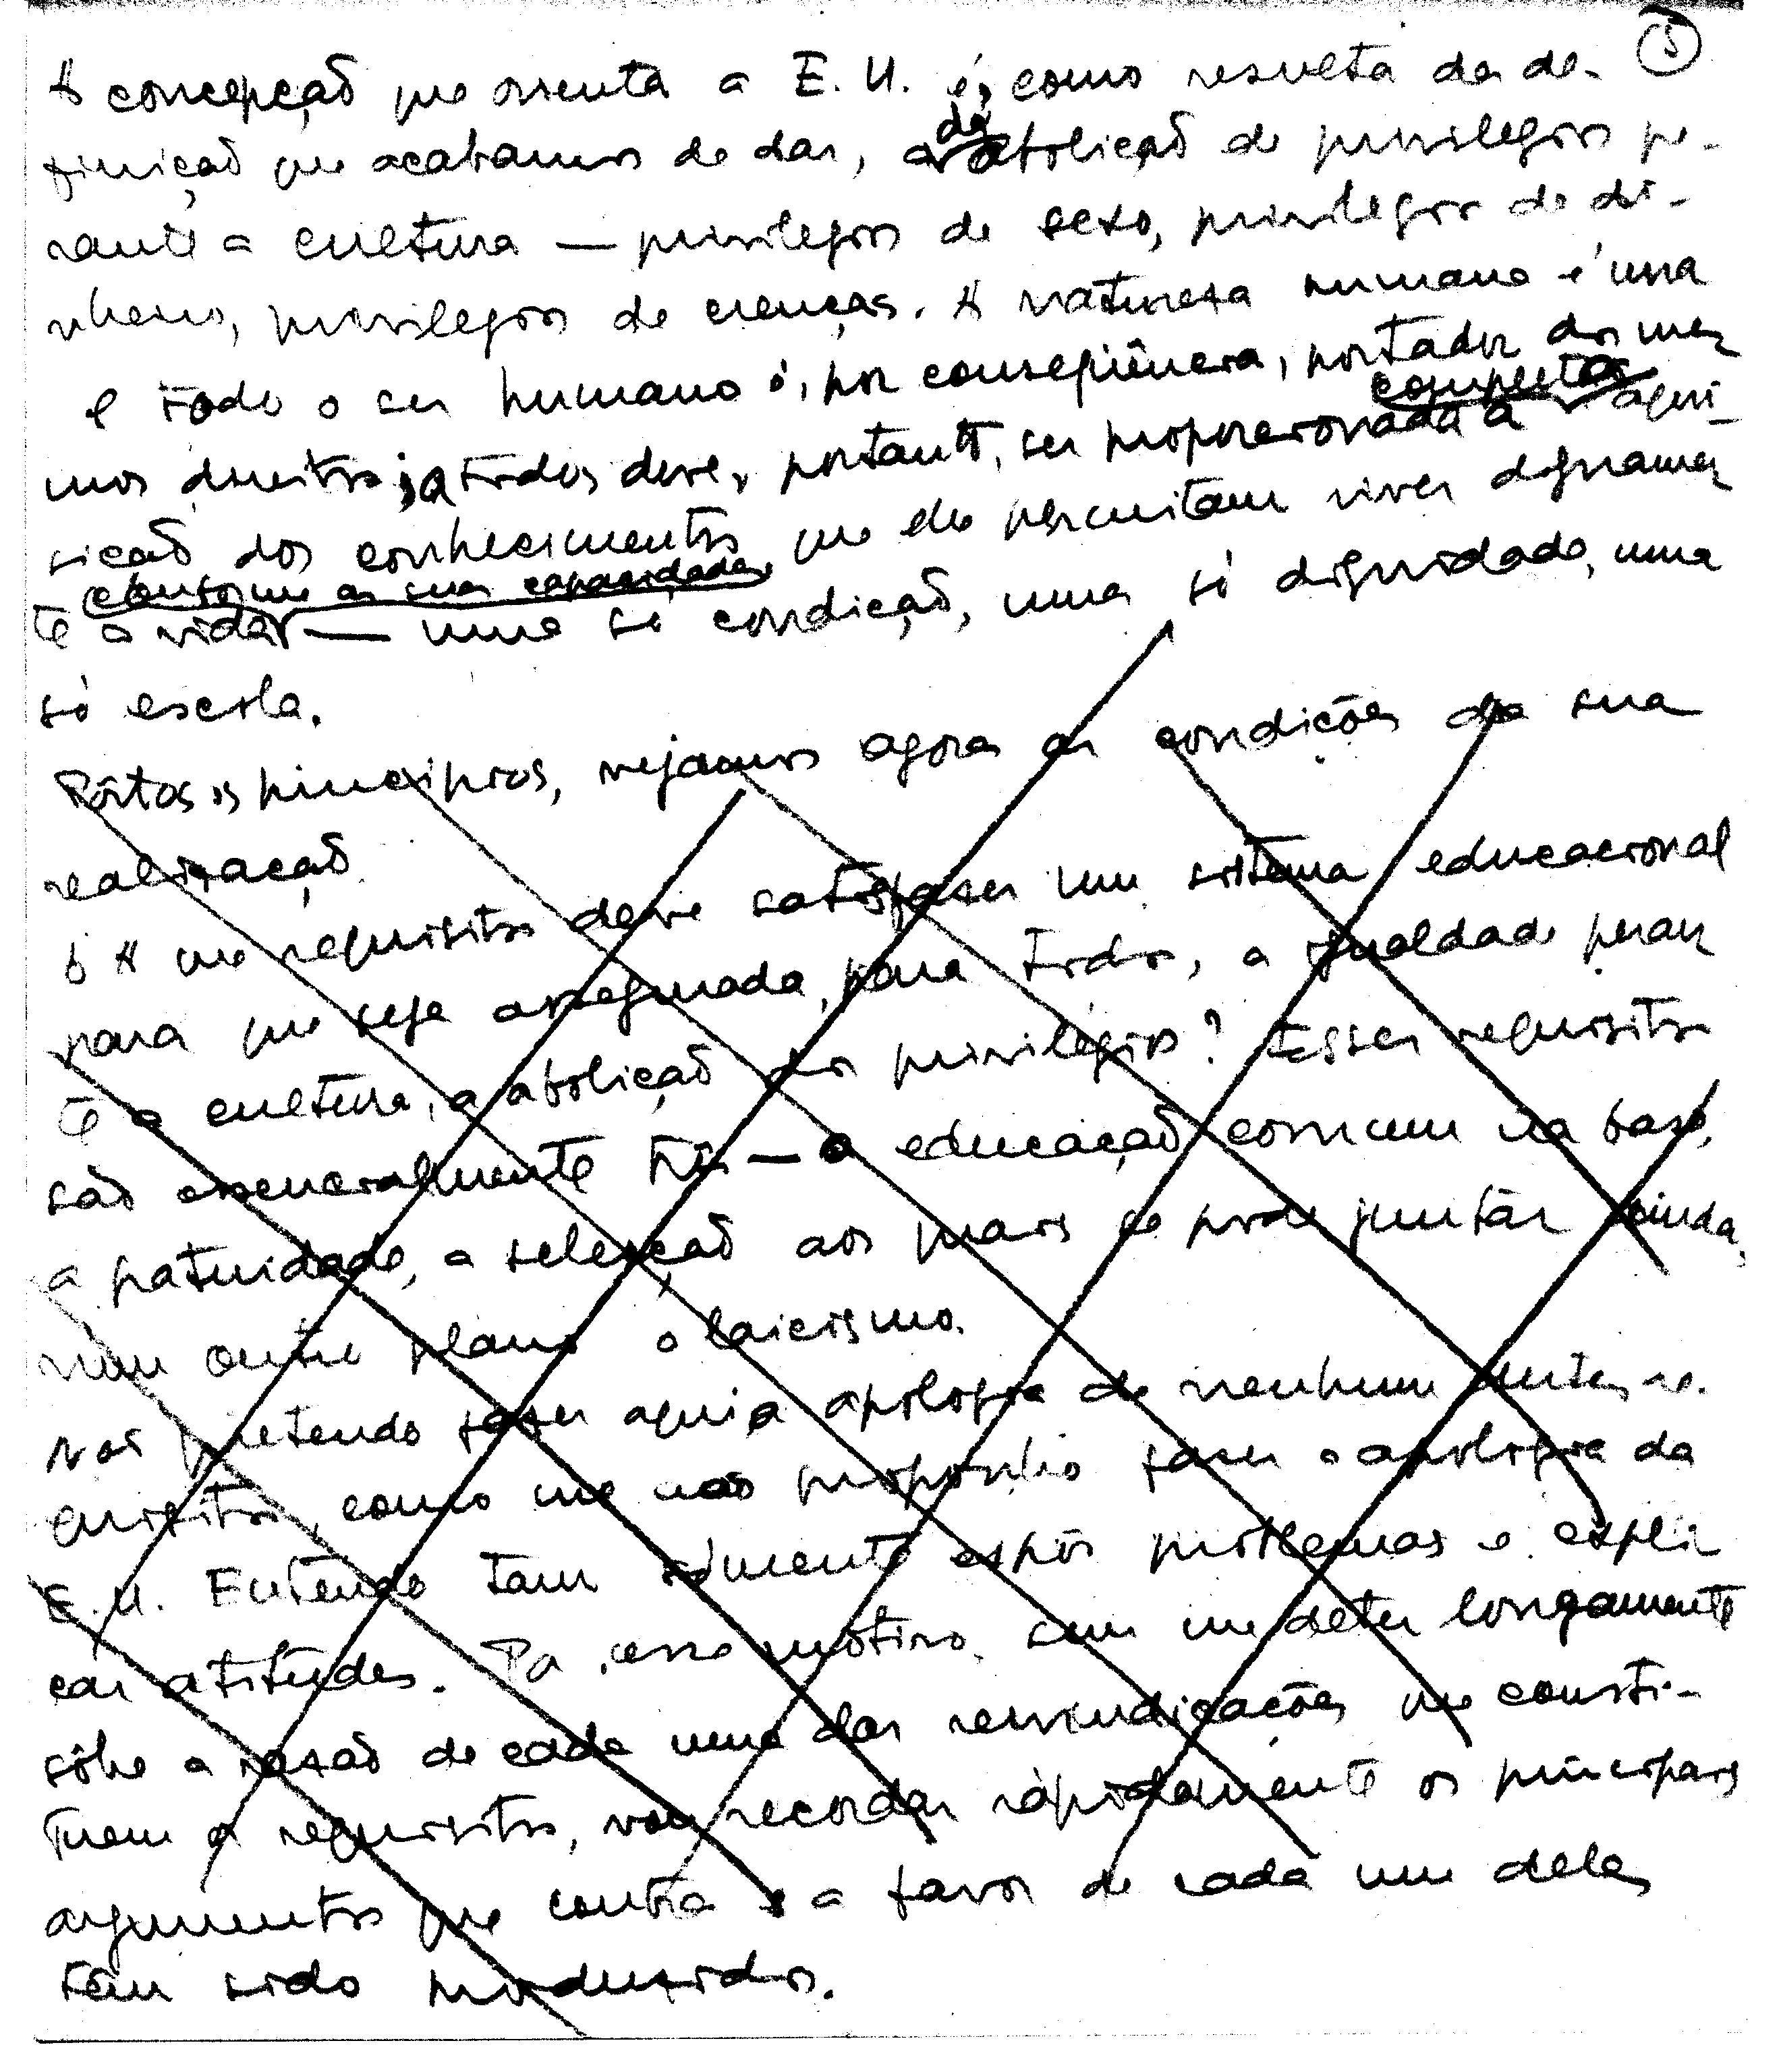 5
A concepção que orienta a E. U. é, como resulta da de-
finição que acabamos de dar, a da abolição de privilégios pe-
rante a cultura — privilégios de sexo, privilégios de di-
nheiro, privilégios de crenças. A natureza humana é uma
e todo o ser humano é, por conseqüência, portador dos mes
mos direitos; a todos deve, portanto, ser proporcionada a completa aqui-
sição dos conhecimentos que lhe permitam viver dignamen
te a vida conforme as suas capacidades — uma só condição, uma só dignidade, uma
só escola.
Postos os princípios, vejamos agora as condições da sua
realização.
A que requisitos deve satisfazer um sistema educacional
para que seja assegurada, para todos, a igualdade peran
te a cultura, a abolição dos privilégios? Esses requisitos
são essencialmente três — a educação comum na base,
a gratuidade, a selecção aos quais se pode juntar ainda,
num outro plano o laicismo.
Não pretendo fazer aqui a apologia de nenhum destes re-
quisitos, como me não proponho fazer a apologia da
E.U. Entendo tam sòmente expôr problemas e expli
car atitudes. Por esse motivo, sem me deter longamente
sôbre a razão de cada uma das reivindicações que consti-
tuem os requisitos, vou recordar ràpidamente os principais
argumentos que contra e a favor de cada um deles
têm sido produzidos.